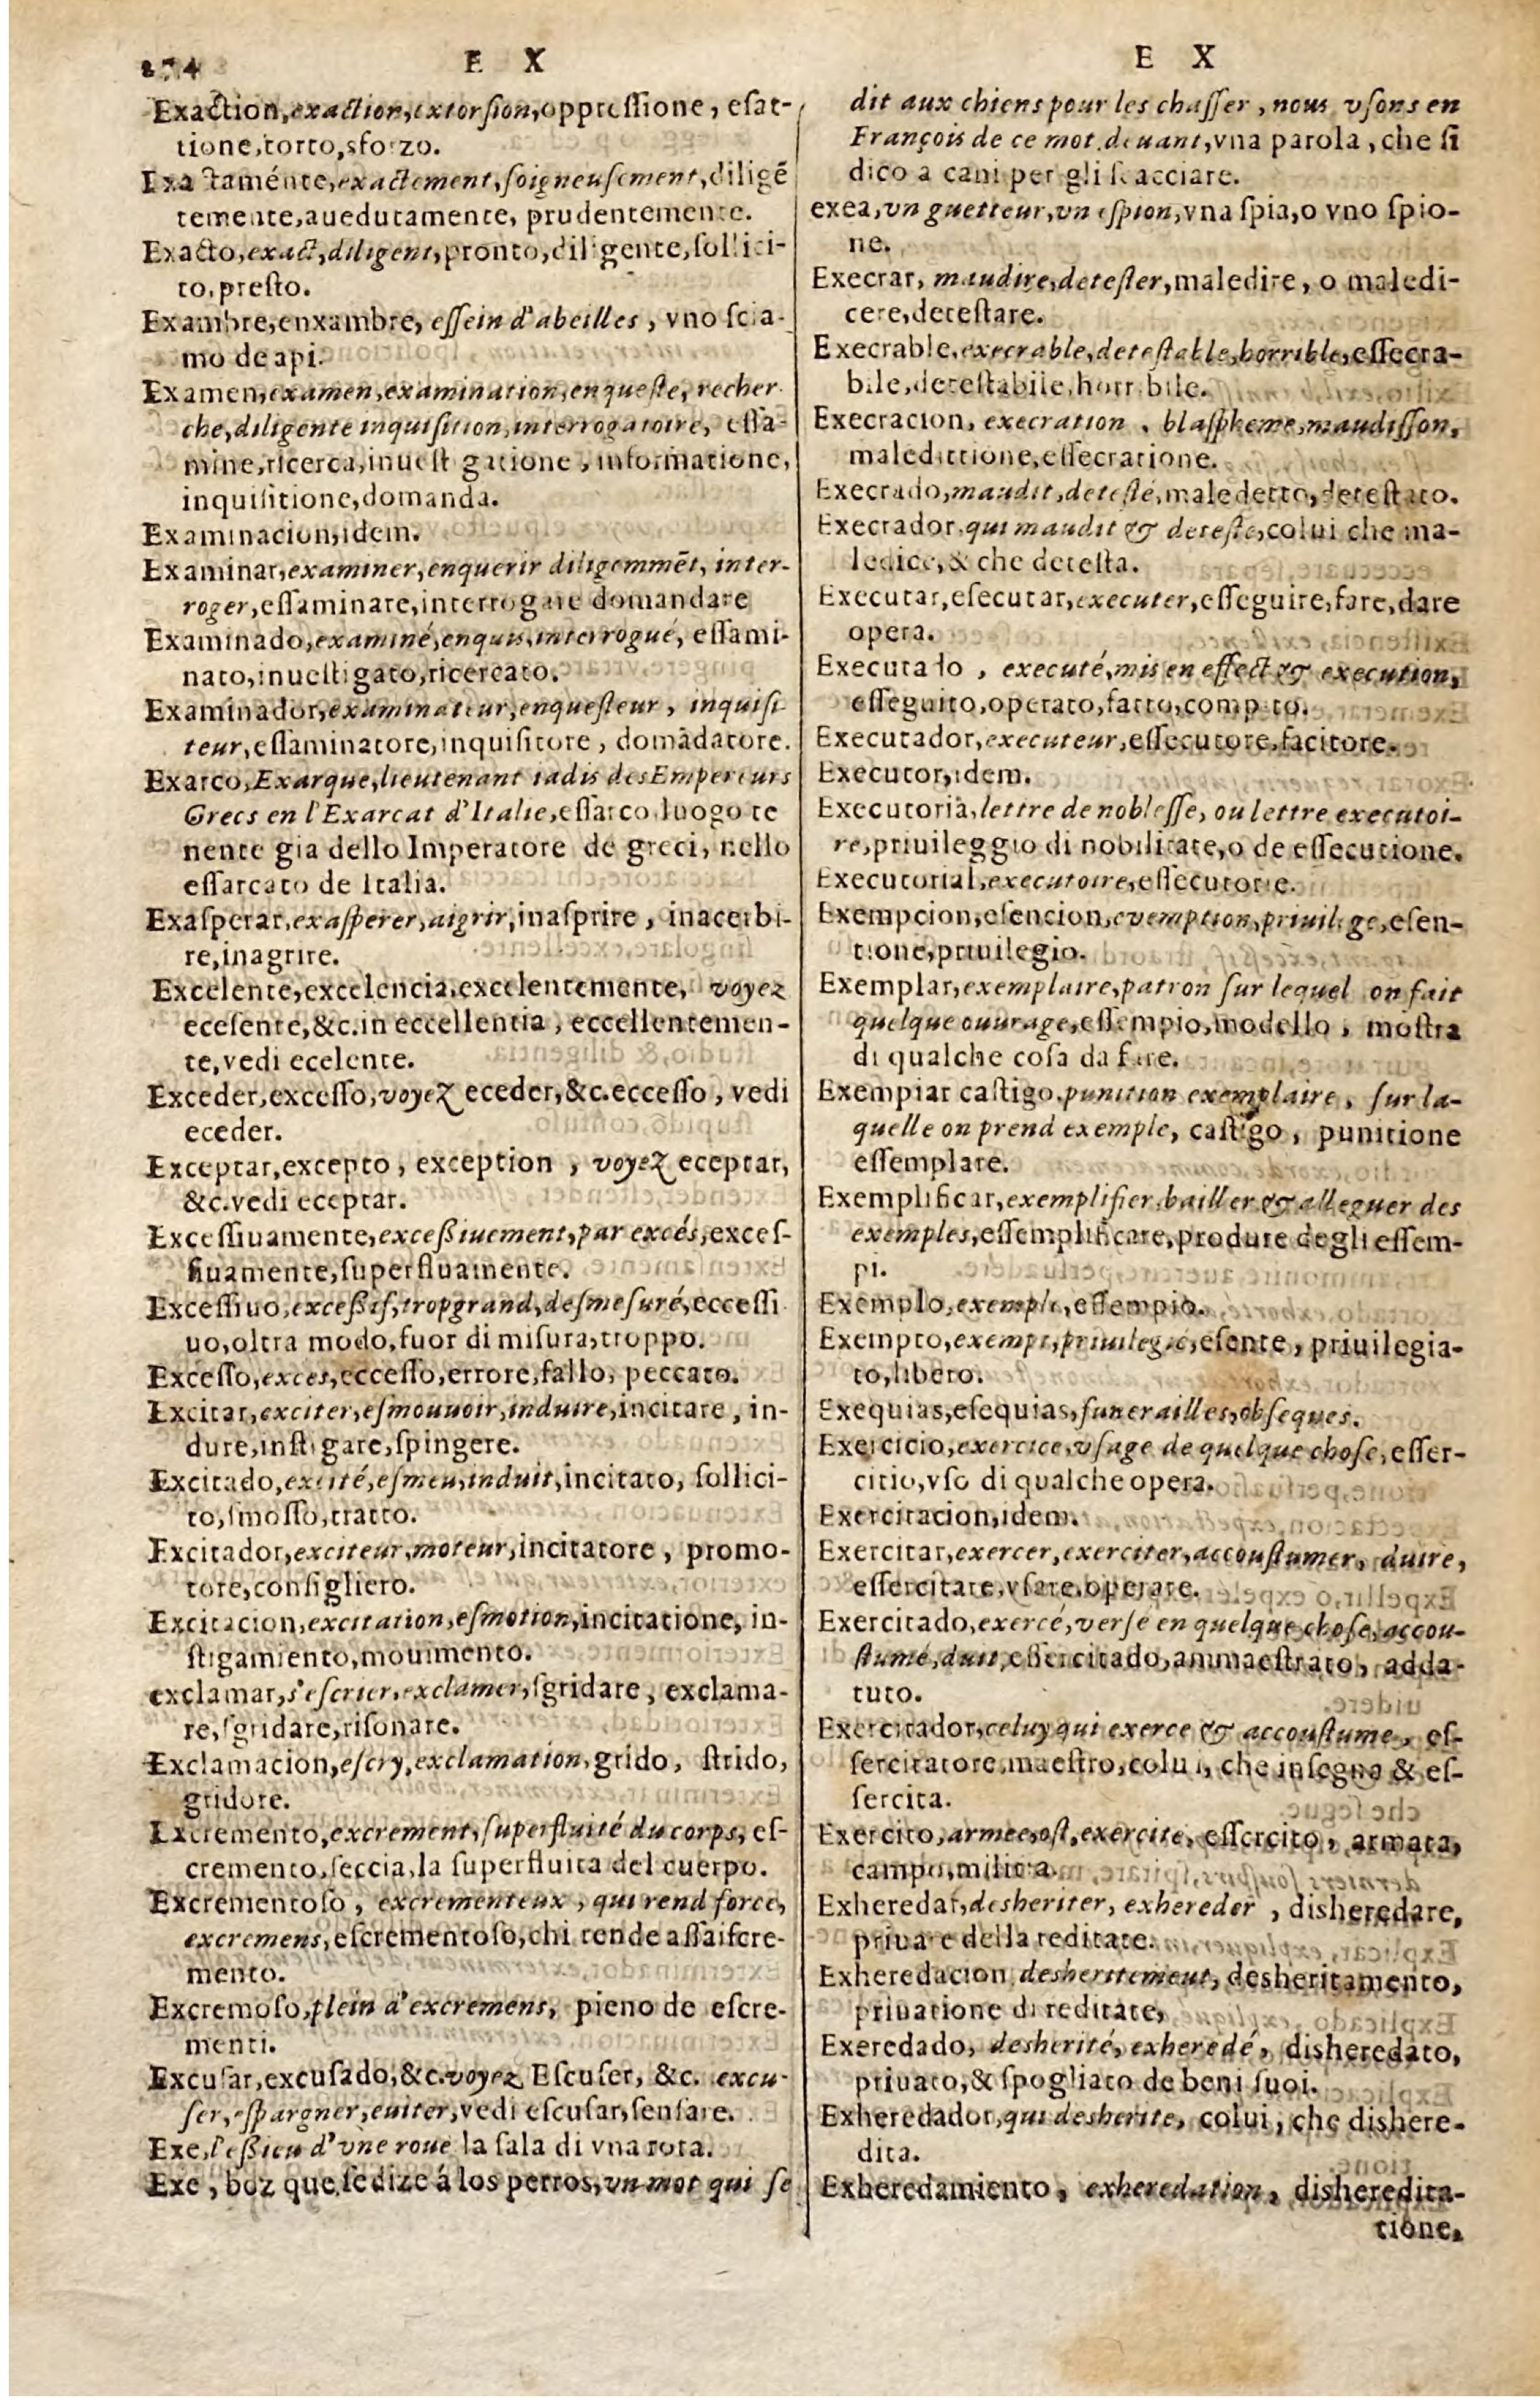 274 E X
Exaction, exaction, extorsion, oppressione, esat-
tione, torto, sforzo.
Exactaménte, exactement, soigneusement, diligẽ
temente, auedutamente, prudentemente.
Exacto, exact, diligent, pronto, diligente, sollici-
to, presto.
Exambre, enxambre, essein d'abeilles, vno scia-
mo de api.
Examen, examen, examination, enqueste, recher
che, diligente inquisition, interrogatoire, essa-
mine, ricerca, inuestigatione, informatione,
inquisitione, domanda.
Examinacion, idem.
Examinar, examiner, enquerir diligemmẽt, inter-
roger, essaminare, interrogare domandare
Examinado, examiné, enquis, interrogué, essami-
nato, inuestigato, ricercato.
Examinador, examinateur, enquesteur, inquisi
teur, essaminatore, inquisitore, domãdatore.
Exarco, Exarque, lieutenant iadis des Empereurs
Grecs en l'Exarcat d'Italie, essarco, luogo te
nente gia dello Imperatore de greci, nello
essarcato de Italia.
Exasperar, exasperer, aigrir, inasprire, inacerbi-
re, inagrire.
Excelente, excelencia, excelentemente, voyez
ecesente, &c. in eccellentia, eccellentemen-
te, vedi ecelente.
Exceder, excesso, voyez eceder, &c. eccesso, vedi
eceder.
Exceptar, excepto, exception, voyez eceptar,
&c. vedi eceptar.
Excessiuamente, excessiuement, par excés, exces-
siuamente, superfluamente.
Excessiuo, excessif, trop grand, desmesuré, eccessi
uo, oltra modo, fuor di misura, troppo.
Excesso, exces, eccesso, errore, fallo, peccato.
Excitar, exciter, esmouuoir, induire, incitare, in-
dure, instigare, spingere.
Excitado, excité, esmeu, induit, incitato, sollici-
to, smosso, tratto.
Excitador, exciteur, moteur, incitatore, promo-
tore, consigliero.
Excitacion, excitation, esmotion, incitatione, in-
stigamiento, mouimento.
exclamar, s'escrier, exclamer, sgridare, exclama-
re, sgridare, risonare.
Exclamacion, escry, exclamation, grido, strido,
gridore.
Excremento, excrement, superfluité du corps, es-
cremento, feccia, la superfluita del cuerpo.
Excrementoso, excrementeux, qui rend force,
excremens, escrementoso, chi rende assai scre-
mento.
Excremoso, plein d'excremens, pieno de escre-
menti.
Excusar, excusado, &c. voyez Escuser, &c. excu-
ser, espargner, euiter, vedi escusar, sensare.
Exe, l'essieu d'vne roue la sala di vna rota.
Exe, boz que se dize á los perros, vn mot qui se
E X
dit aux chiens pour les chasser, nous vsons en
François de ce mot, deuant, vna parola, che si
dico a cani per gli scacciare.
exea, vn guetteur, vn espion, vna spia, o vno spio-
ne.
Execrar, maudire, detester, maledire, o maledi-
cere, detestare.
Execrable, execrable, detestable, horrible, essecra-
bile, detestabile, horribile.
Execracion, execration, blaspheme, maudisson,
maledittione, essecratione.
Execrado, maudit, detesté, maledetto, detestato.
Execrador, qui maudit & deteste, colui che ma-
ledice, & che detesta.
Executar, esecutar, executer, esseguire, fare, dare
opera.
Executado, executé, mis en effect & execution,
esseguito, operato, fatto, compito.
Executador, executeur, essecutore, facitore.
Executor, idem.
Executoria, lettre de noblesse, ou lettre executoi-
re, priuileggio di nobilitate, o de essecutione.
Executorial, executoire, essecutorie.
Exempcion, esencion, evemption, priuilege, esen-
tione, priuilegio.
Exemplar, exemplaire, patron sur lequel on fait
quelque ouurage, essempio, modello, mostra
di qualche cosa da fare.
Exemplar castigo, punition exemplaire, sur la-
quelle on prend exemple, castigo, punitione
essemplare.
Exemplificar, exemplifier, bailler & alleguer des
exemples, essemplificare, produre degli essem-
pi.
Exemplo, exemple, essempio.
Exempto, exempt, priuilegié, esente, priuilegia-
to, libero.
Exequias, esequias, funerailles, obseques.
Exercicio, exercice, vsage de quelque chose, esser-
citio, vso di qualche opera.
Exercitacion, idem.
Exercitar, exercer, exerciter, accoustumer, duire,
essercitare, vsare, operare.
Exercitado, exercé, versé en quelque chose, accou-
stumé, duit, essercitado, ammaestrato, adda-
tuto.
Exercitador, celuy qui exerce & accoustume, es-
sercitatore, maestro, colui, che insegna & es-
sercita.
Exercito, armee, ost, exercite, essercito, armata,
campo, militia.
Exheredar, desheriter, exhereder, disheredare,
priuare della reditate.
Exheredacion, desheritement, desheritamento,
priuatione di reditate,
Exeredado, desherité, exheredé, disheredato,
priuato, & spogliato de beni suoi.
Exheredador, qui desherite, colui, che dishere-
dita.
Exheredamiento, exheredation, disheredita-
tione,